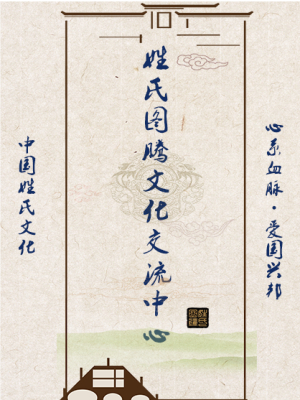 心系血脉·爱国兴邦
姓氏图腾文化交流中心
中国姓氏文化